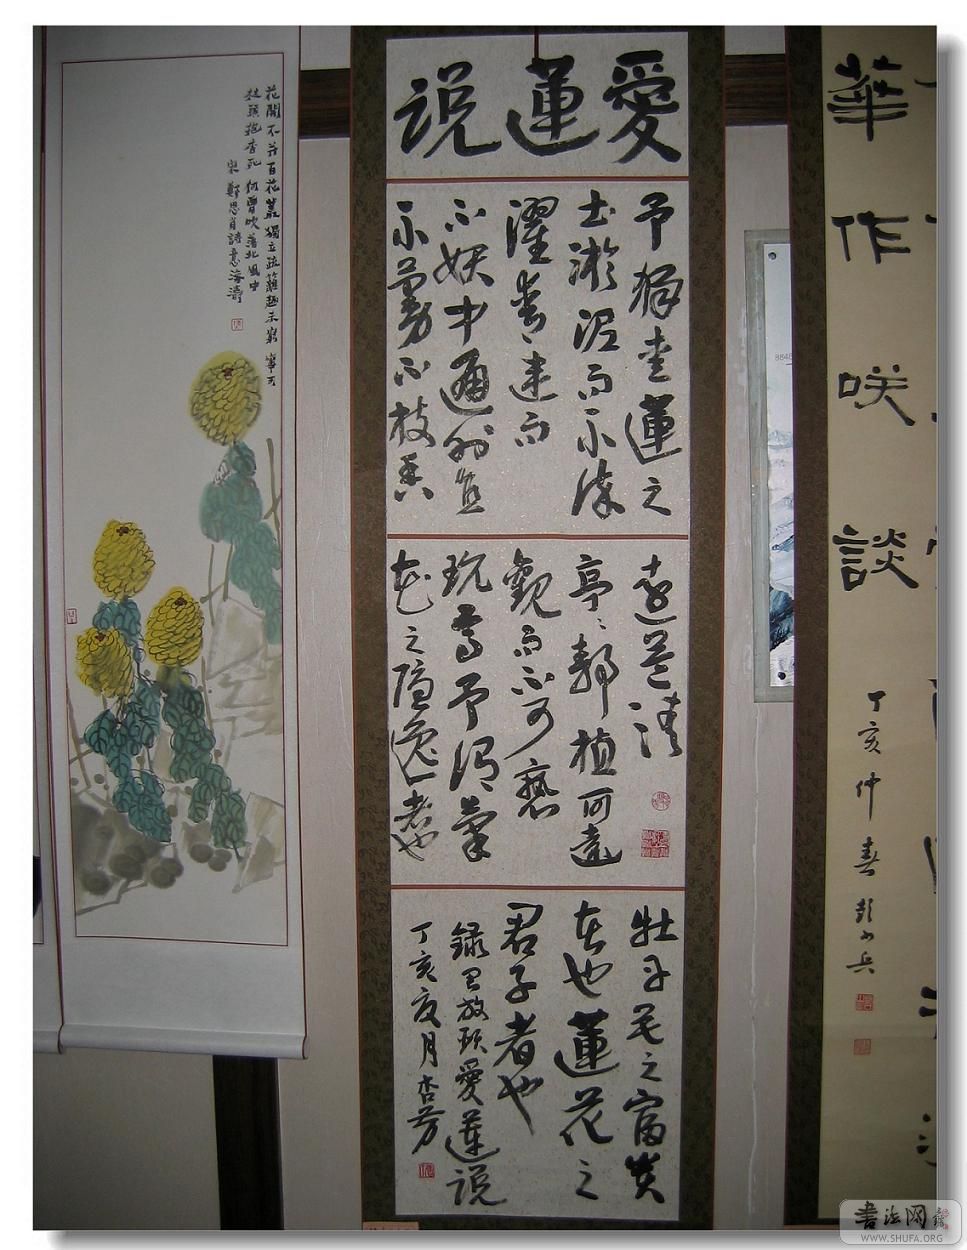 花開不并百花叢獨立疏籬趣未窮寧可
枝頭抱香死何曾吹落北風中
宋鄭思肖詩意海濤
愛蓮說
予獨愛蓮之
出淤泥而不染
濯青漣而
不妖中通外直
不蔓不枝香
遠益清
亭亭靜植可遠
觀而不可褻
玩焉予謂菊
花之隱逸者也
牡丹花之富貴
者也蓮花之
君子者也
錄周敦頤愛蓮說
丁亥夏月杏芳
8848
華作咲談
丁亥仲春彭小兵
書法网
WWW.SHUFA.ORG